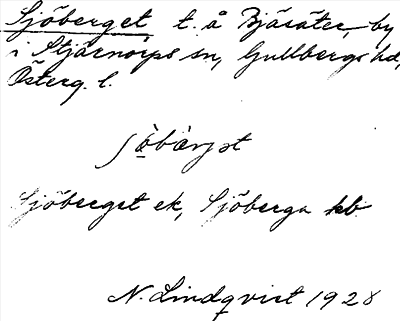 Sjöberget t. å Bjäsäter, by
i Stjärnorps sn, Gullbergs hd,
Österg. l.
Sjöberget ek, Sjöberga kb
N. Lindqvist 1928